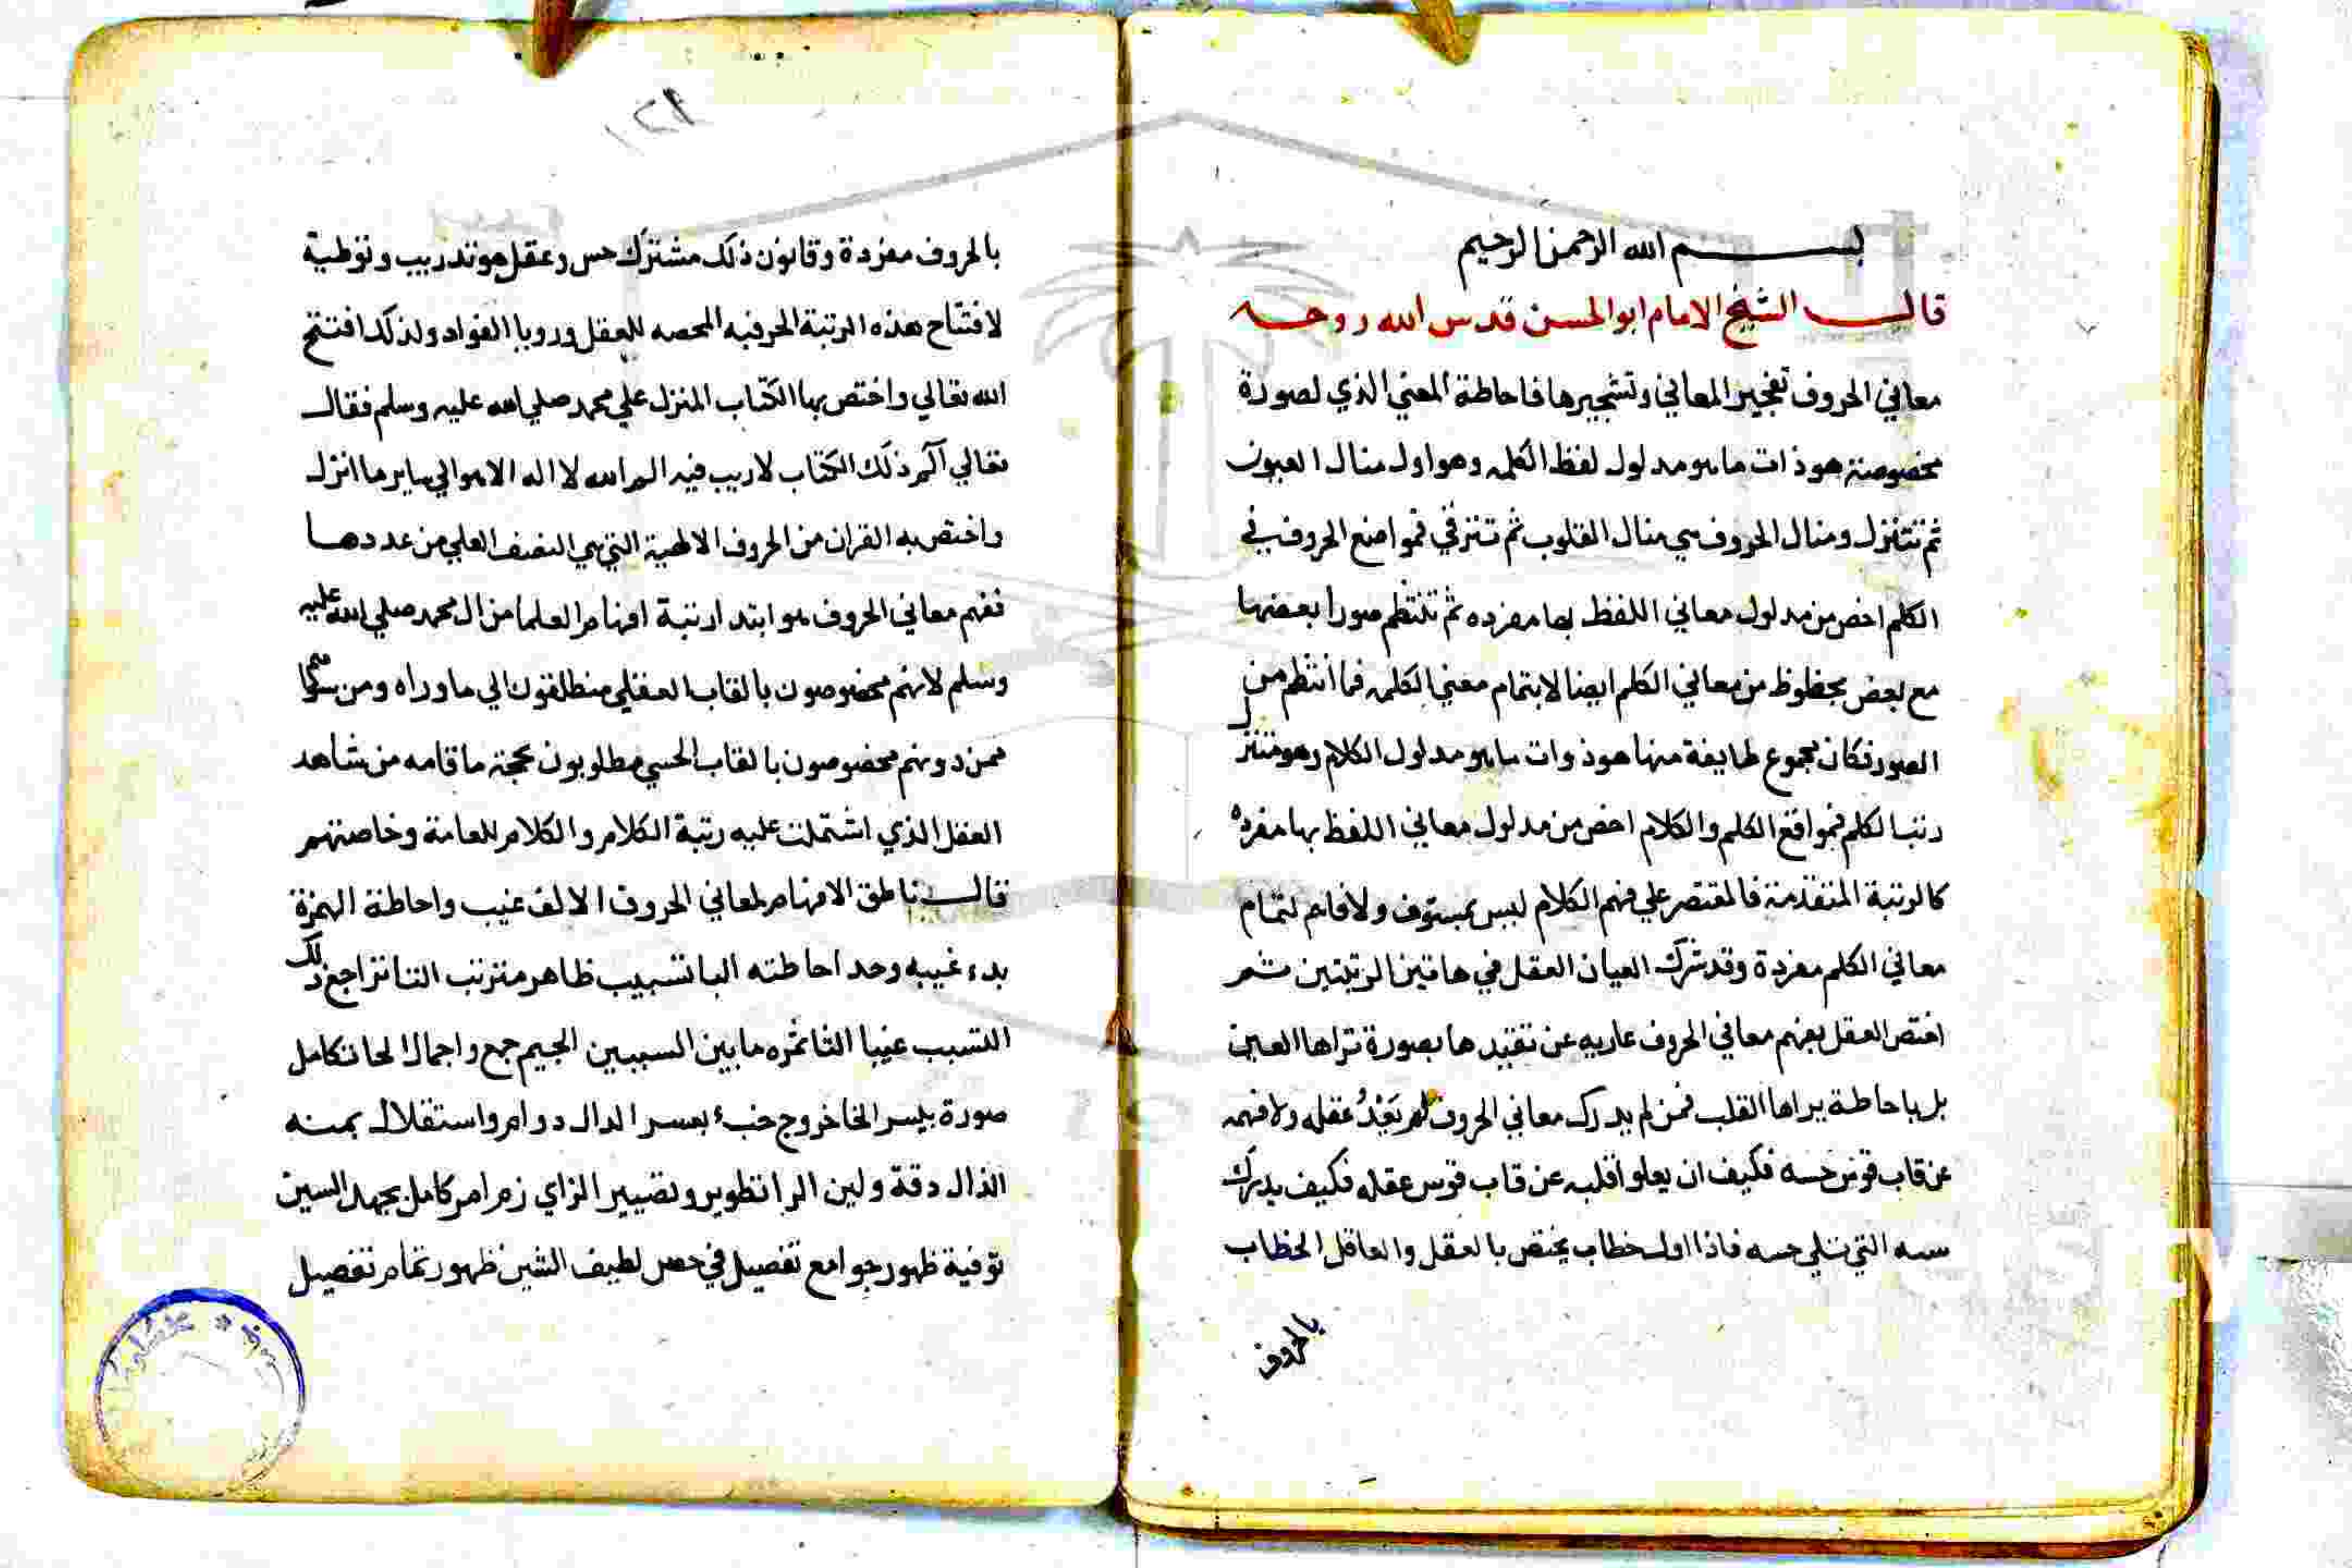 بسم الله الرحمن الرحيم
قال الشيخ الامام ابو الحسن قدس الله روحه
معاني الحروف تفجير المعاني وتشجيرها فاحاطة المعني الذي لصورة
مخصوصة هو ذات ما هو مدلول لفظ الكلمه وهو اول منال العيون
ثم تتنزل ومنال الحروف هي منال القلوب ثم تترقي فمواضع الحروف في
الكلم اخص من مدلول معاني اللفظ بها مفرده ثم تنتظم صورا بعضها
مع بعض بحظوظ من معاني الكلم ايضا لابتمام معني الكلمه فما انتظم من
الصور فكان مجموع طايفة منها هو ذوات ما هو مدلول الكلام وهو متنزل
رتب الكلم فمواقع الكلم والكلام اخص من مدلول معاني اللفظ بها مفرده
كالرتبة المتقدمة فالمقتصر علي فهم الكلام ليس بمستوف ولا فاهم لتمام
معاني الكلم مفردة وقد شرك العيان العقل في هاتين الرتبتين ثم
اختص العقل بفهم معاني الحروف عاريه عن تقيدها بصورة تراها العين
بل باحاطة يراها القلب فمن لم يدرك معاني الحروف لم يَعْدُ عقله ولا فهمه
عن قاب قوس حسه فكيف ان يعلو اقلبه عن قاب قوس عقله فكيف يدرك
سه التي تلي حسه فاذا اول خطاب يختص بالعقل والعاقل الخطاب
بالحروف
١٢١
بالحروف مفردة وقانون ذلك مشترك حس وعقل هو تدريب وتوطية
لافتتاح هذه الرتبة الحرفيه المحصه للعقل ورويا الفواد ولذلك افتتح
الله تعالي واختص بها الكتاب المنزل علي محمد صلي الله عليه وسلم فقال
تعالي آلم ذلك الكتاب لا ريب فيه الم الله لا اله الا هو الي ساير ما انزل
واختص به القران من الحروف الالهية التي هي النصف العلي من عددها
ففهم معاني الحروف هو ابتدا رتبة افهام العلما من ال محمد صلي الله عليه
وسلم لانهم مخصوصون بالقاب العقلي منطلقون الي ما وراه ومن سواهم
ممن دونهم مخصوصون بالقاب الحسي مطلوبون بحجة ما قامه من شاهد
العقل الذي اشتملت عليه رتبة الكلام والكلام للعامة وخاصتهم
قال ناطق الافهام لمعاني الحروف الالف غيب واحاطة الهمزة
بدء غيبه وحد احاطته البا تسبيب ظاهر مترتب التا تراجع ذلك
التسبب غيبا الثا ثمره ما بين السببين الجيم جمع واجمال الحا تكامل
صورة بيسر الخا خروج خبء بعسر الدال دوام واستقلال بمنه
الذال دقة ولين الرا تطوير وتصيير الزاي زمام امر كامل بجهد السين
توفية ظهور جوامع تفصيل في حصر لطيف الشين ظهور تمام تفصيل